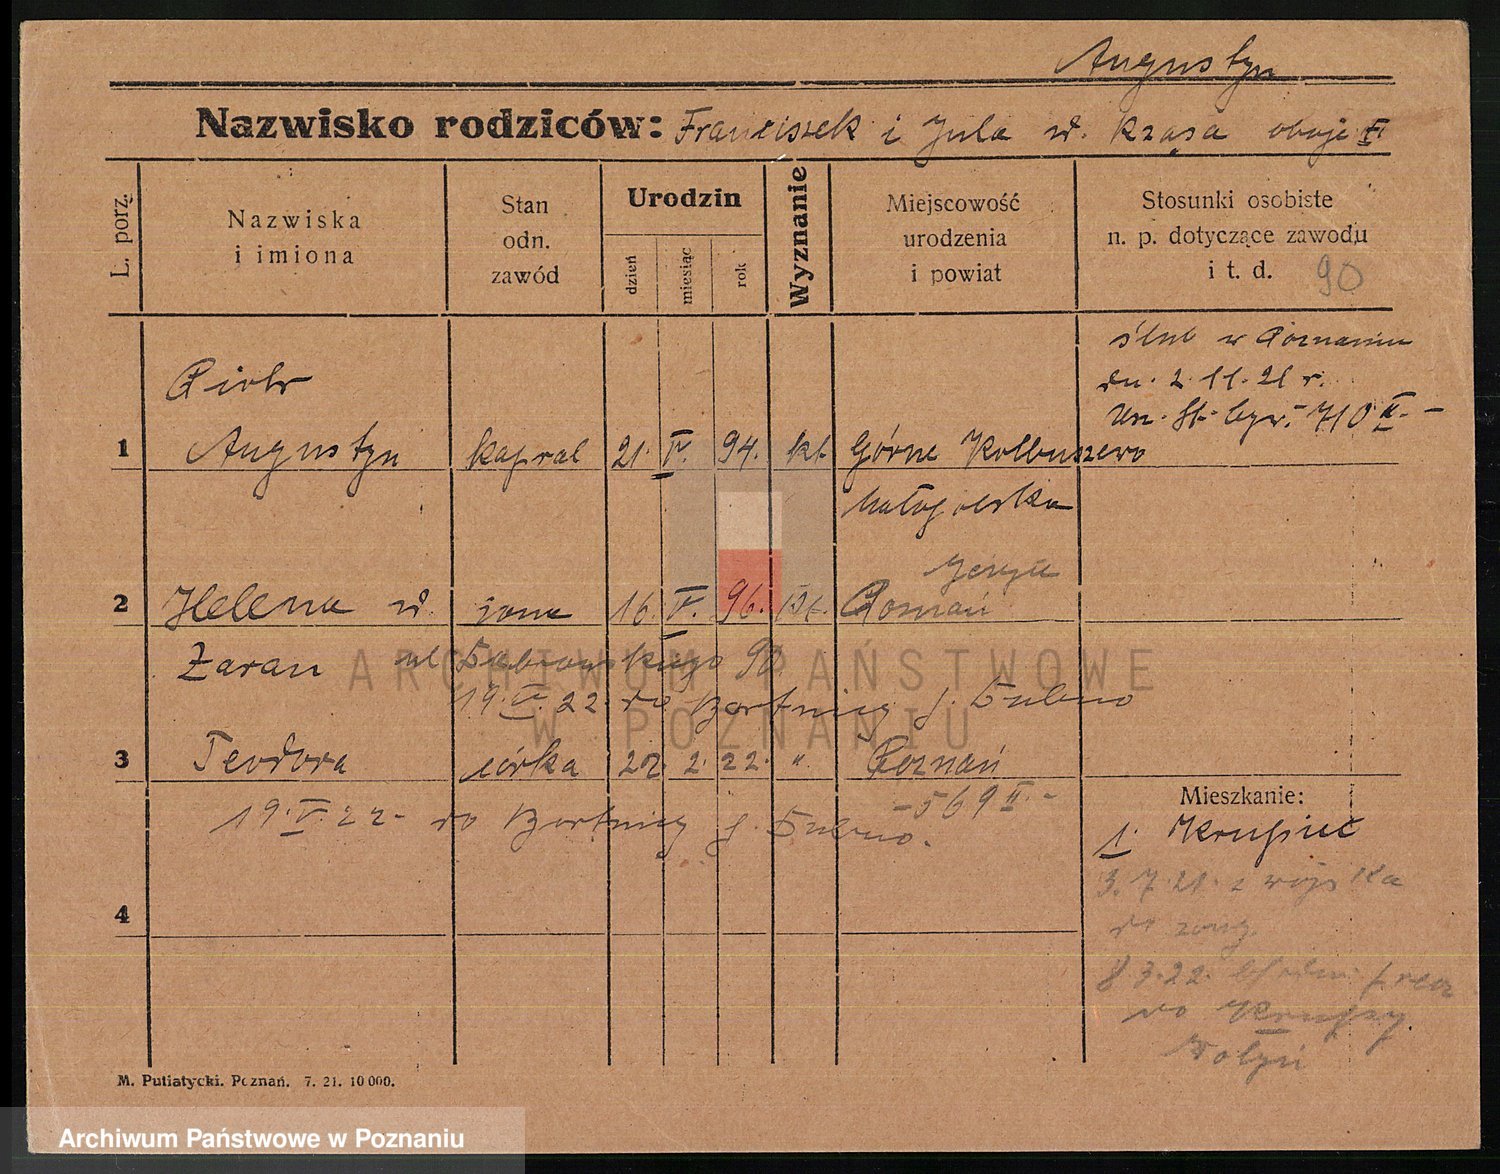 Augustyn
Nazwisko rodziców: Franciszek i Jula d. Krząsa oboje
L. porz.
Nazwiska i imiona
Stan odn. zawód
Urodzin
dzień
miesiąc
rok
Wyznanie
Miejscowość urodzenia i powiat
Stosunki osobiste n. p. dotyczące zawodu i t. d. 90
ślub w Poznaniu
dn. 2.11.21 r.
710 II. -
Piotr
1 Augustyn kapral 21. IV. 94. kt Górne Kolbuszewo
Małopolska
2 Helena d. żona 16. IV. 96. kt. Poznań
Żaran ul Dąbrowskiego 90
19. V. 22. do Bortnicy p. Dubno
3 Teodora córka 22. 2. 22. " Poznań
- 569 II. -
19. V. 22 - do Bortnicy p. Dubno.
4
Mieszkanie:
1. Krupiec
3.7.21. z wojska
do żony
8 3.22.
do Krupcy
Wołyń
M. Putiatycki. Poznań. 7. 21. 10 000.
ARCHIWUM PAŃSTWOWE
W POZNANIU
Archiwum Państwowe w Poznaniu